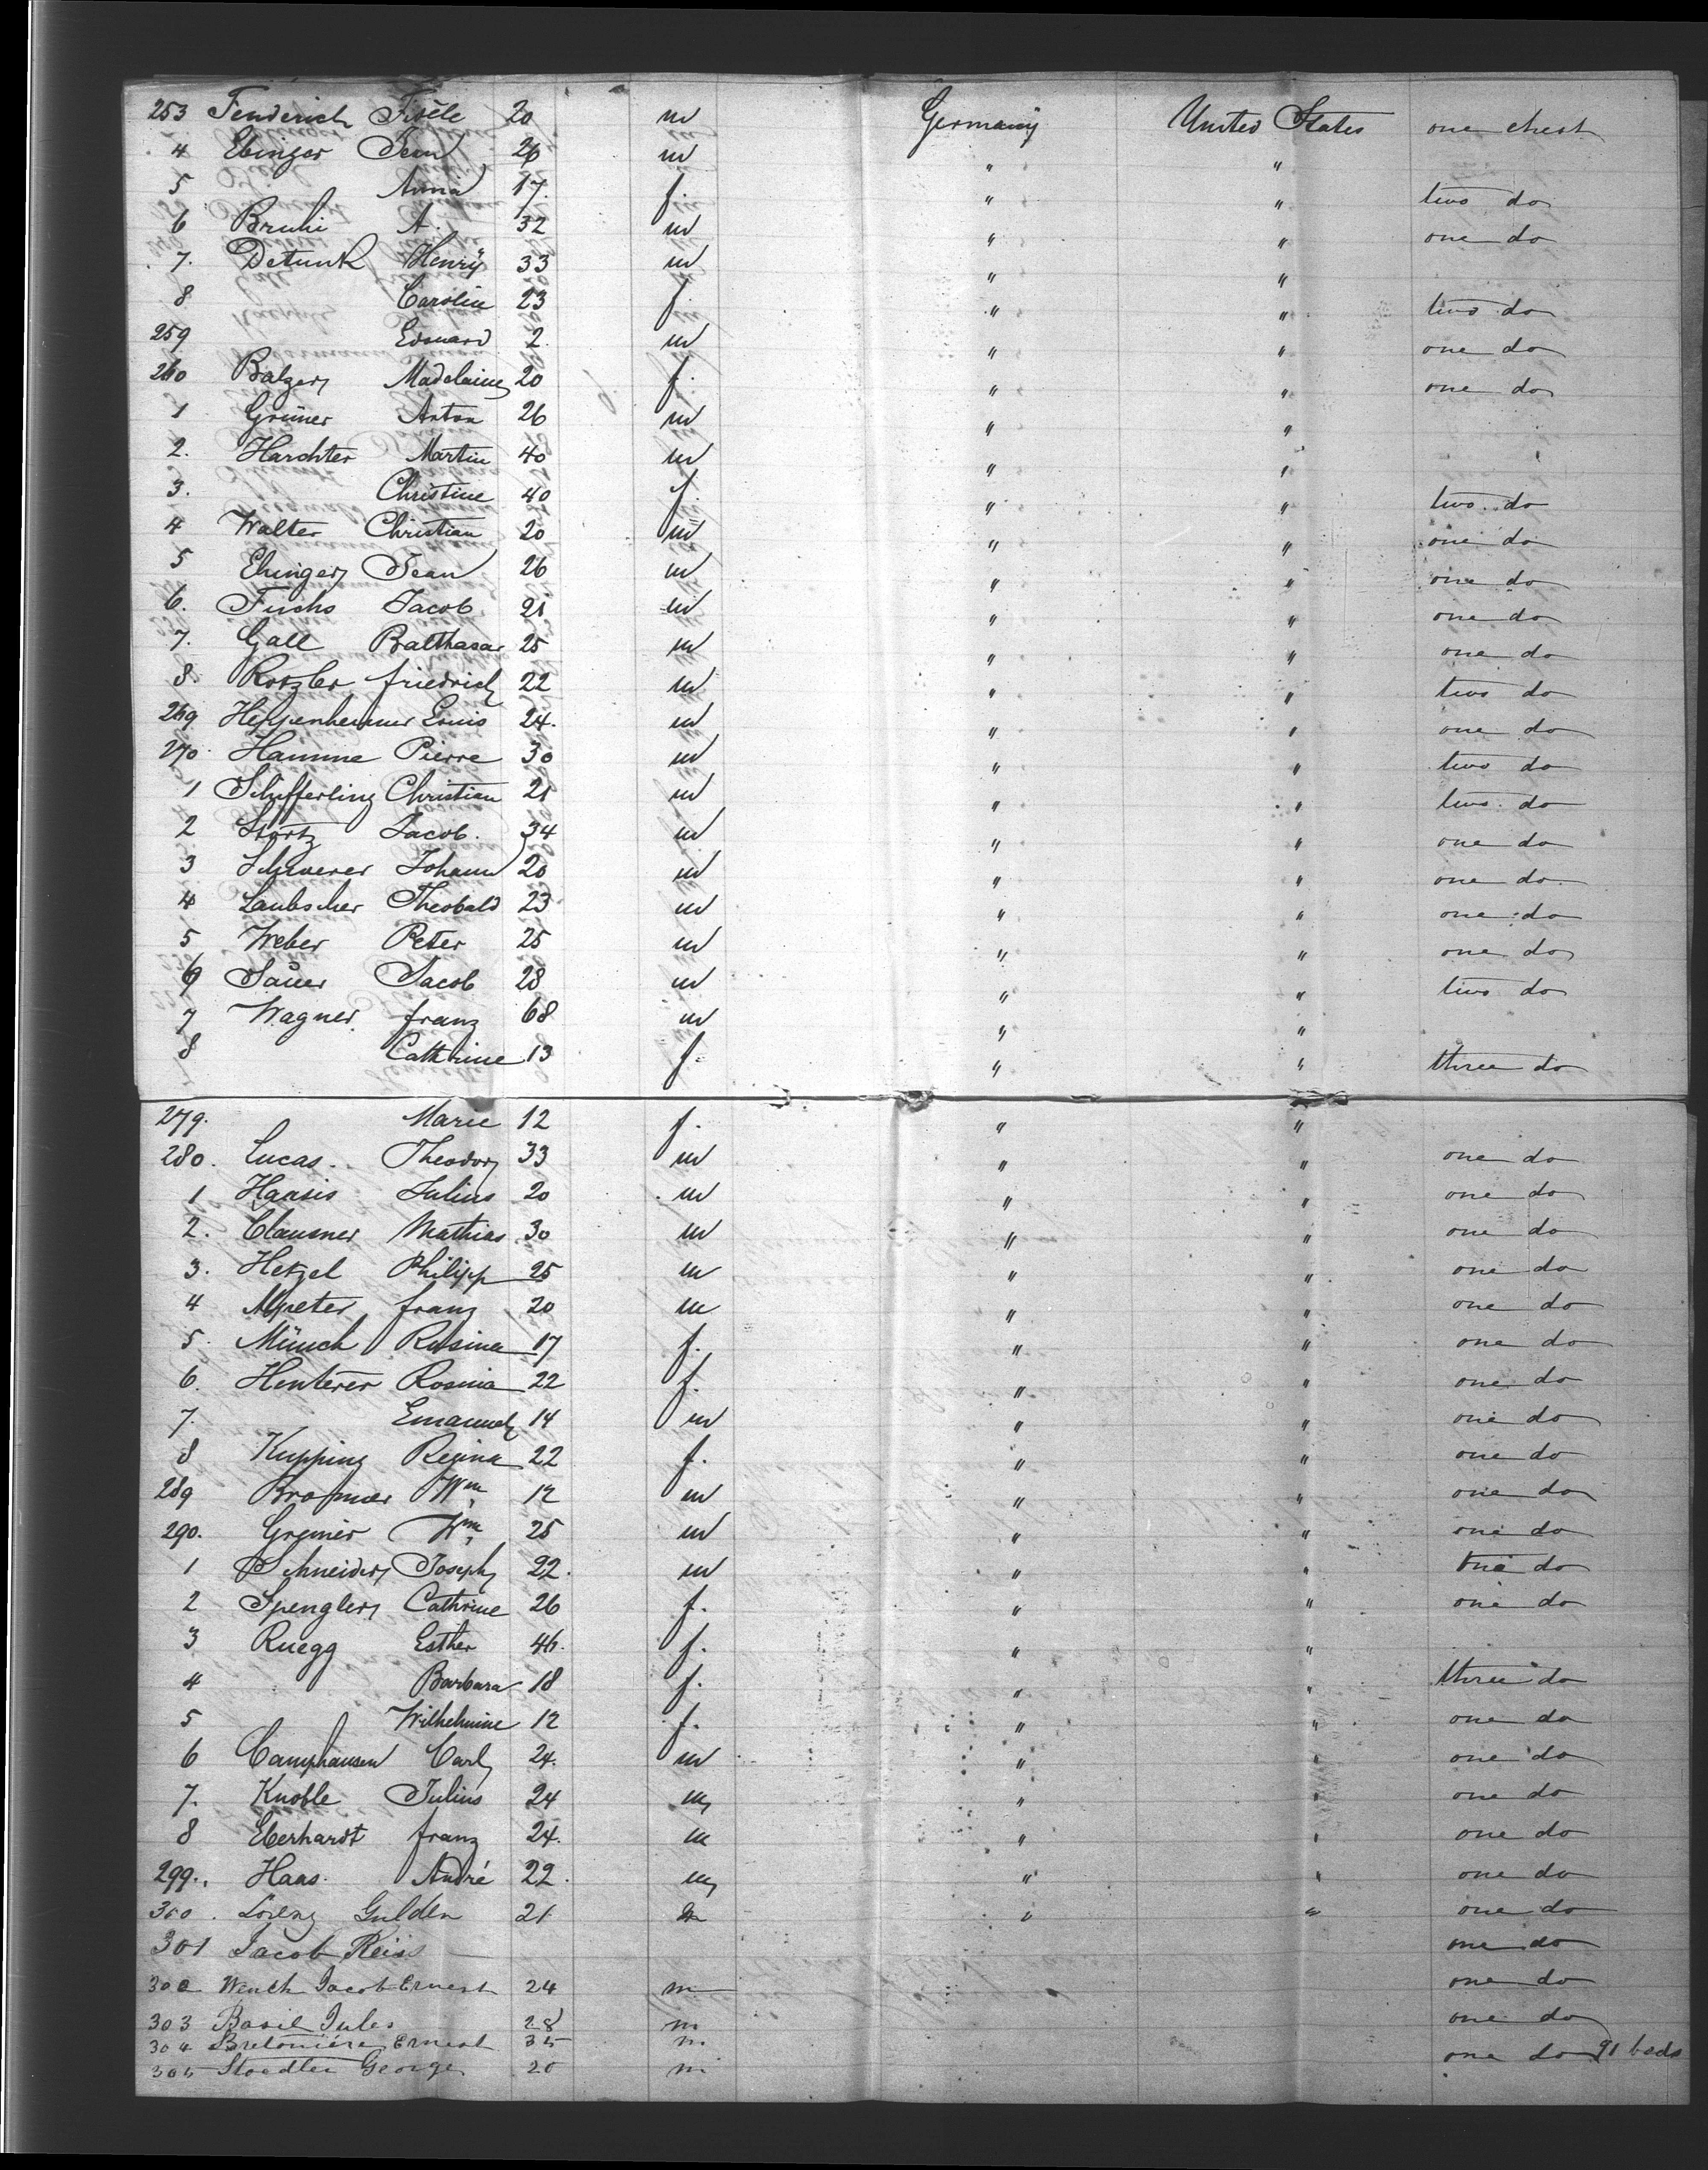 253 Fenderich Fisèle 20 m Germany United States one chest
4 Ebinger Jean 26 m " "
5 Anna 17. f. " " two do
6 Bruhi A. 32 m " " one do
7. Detunk Henry 33 m " "
8 Caroline 23 f. " " two do
259 Edouard 2. m " " one do
260 Balzer Madelaine 20 f. " " one do
1 Grüner Anton 26 m " "
2. Harchter Martin 40 m " "
3. Christine 40 f. " " two do
4 Walter Christian 20 m " " one do
5 Ehinger Jean 26 m " " one do
6. Fuchs Jacob 21 m " " one do
7. Gall Balthasar 25 m " " one do
8. friedrich 22 m " " two do
269 Heppenheimer Louis 24. m " " one do
270 Hamme Pierre 30 m " " two do
1 Schifferling Christian 21 m " " two do
2 Startz Jacob. 34 m " " one do
3 Scheuerer Johann 20 m " " one do
4 Laubscher Theobald 23 m " " one do
5 Weber Peter 25 m " " one do
6 Sauer Jacob 28 m " " two do
7 Wagner franz 68 m " "
8 Cathrine 13 f. " " three do
279. Marie 12 f. " "
280. Lucas. Theodor 33 m " " one do
1 Haasis Julius 20 m " " one do
2. Clausner Mathias 30 m " " one do
3. Hetzel Philipp 25 m " " one do
4 franz 20 m " " one do
5. Münch Rosina 17 f. " " one do
6. Henterer Rosina 22 f. " " one do
7. Emanuel 14 m " " one do
8 Kupping Regina 22 f. " " one do
289 Wm 12 m " " one do
290. Greiner Wm 25 m " " one do
1 Schneider Joseph 22. m " " one do
2 Spengler Cathrine 26 f. " " one do
3 Ruegg Esther 46. f. " "
4 Barbara 18 f. " " three do
5 Wilhelmine 12 f. " " one do
6 Camphausen Carl 24. m " " one do
7. Knoble Julius 24 m " " one do
8 Eberhardt franz 24. m " " one do
299. Haas. André 22. m " " one do
300. Lorenz Gulden 21 m " " one do
301 Jacob Reiss one do
302 Wench Jacob Ernest 24 m one do
303 Basil Jules 28 m one do
304 Bretonnière Ernest 35 m.
305 Stoedler George 20 m one do 91 beds